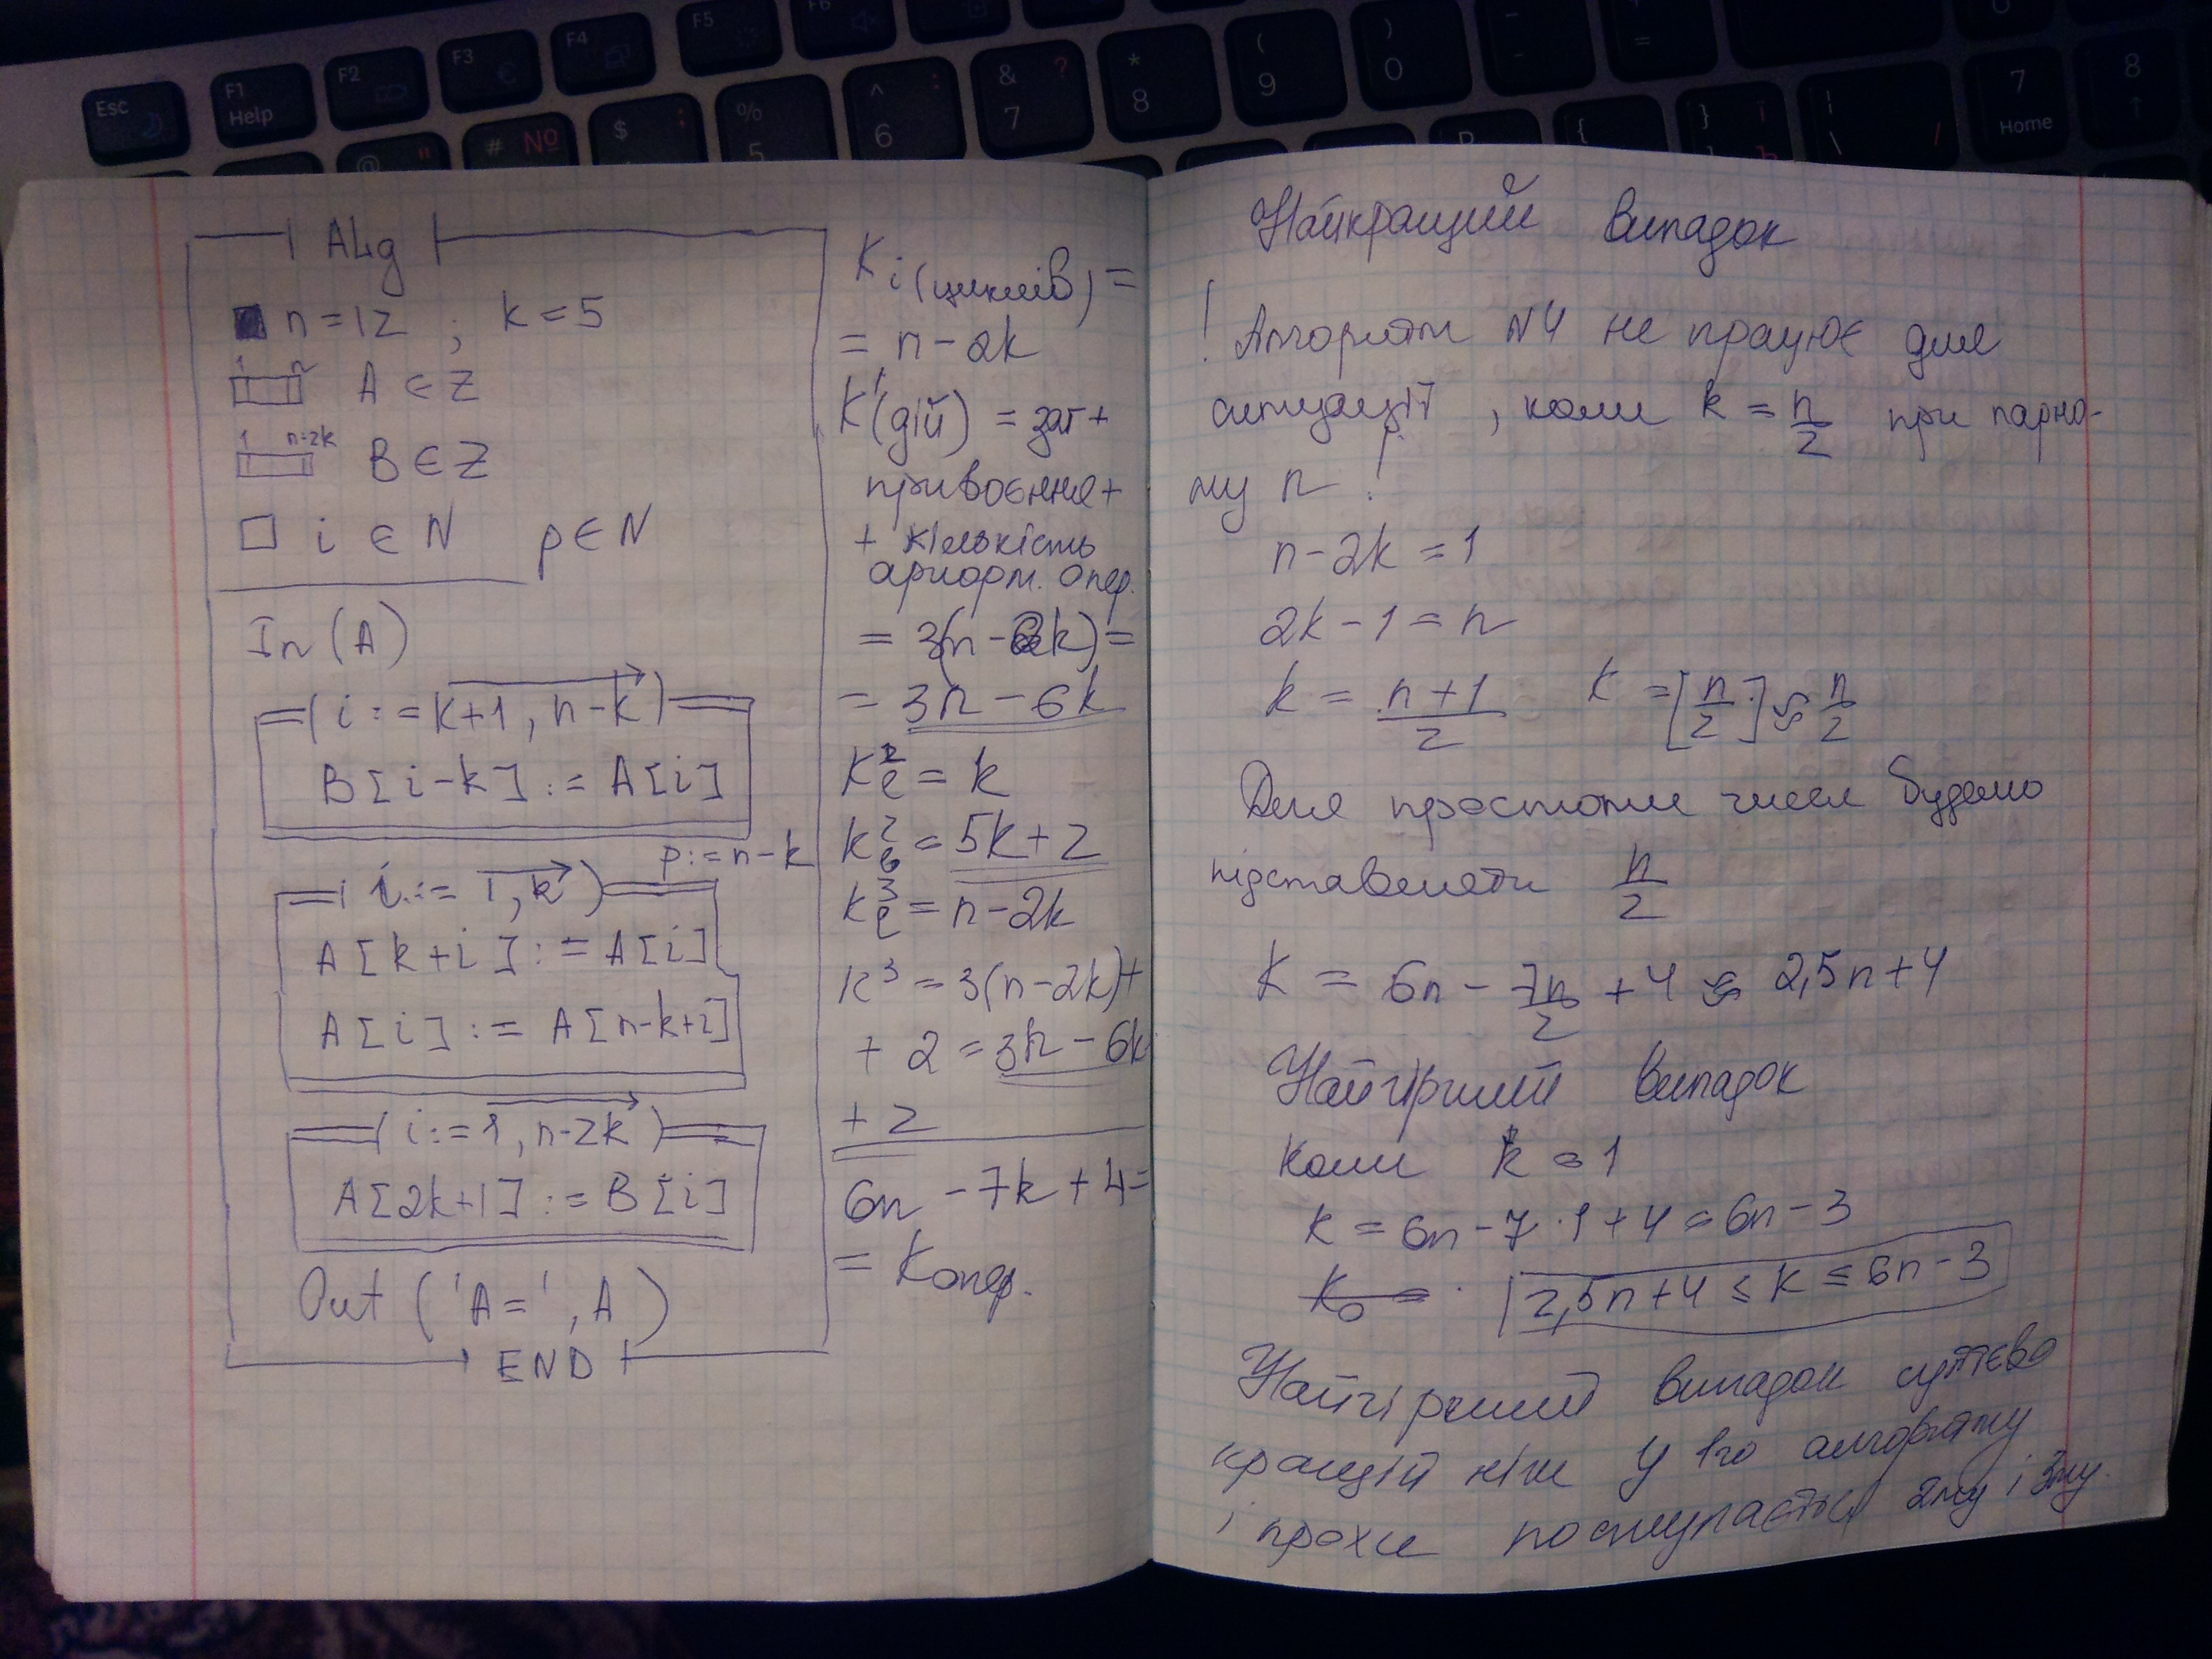 Esc
F1
Help
F2
F3
F4
F5
F6
@ "
# №
$ ;
%
5
^ :
6
& ?
7
*
8
(
9
)
0
-
=
7
Home
8
Alg
n=12 ; k=5
1 n
A ∈ Z
1 n-2k
B ∈ Z
i ∈ N p ∈ N
In(A)
(i:=k+1, n-k)
B[i-k]:=A[i]
p:=n-k
(i:=1,k)
A[k+i]:=A[i]
A[i]:=A[n-k+i]
(i:=1,n-2k)
A[2k+1]:=B[i]
Out('A=',A)
END
K i(циклів)=
= n-2k
K'(дій) = заг+
привоєння+
+ кількість
арифм. опер.
= 3(n-2k)=
= 3n-6k
= k
= 5k+2
= n-2k
K³ = 3(n-2k)+
+ 2 = 3n-6k
+2
6n-7k+4=
= Kопер.
Найкращий випадок
! Алгоритм N4 не працює для
ситуації, коли k = n/2 при парно-
му n !
n-2k=1
2k-1=n
k = (n+1)/2 K = [n/2] ≈ n/2
Для простоти чисел будемо
підставляти n/2
K = 6n - 7n/2 + 4 ≈ 2,5n+4
Найгірший випадок
Коли k = 1
K = 6n-7·1+4=6n-3
2,5n+4 ≤ K ≤ 6n-3
Найгірший випадок суттєво
кращій ніж у 1го алгоритму
і трохи поступається 2му і 3му.